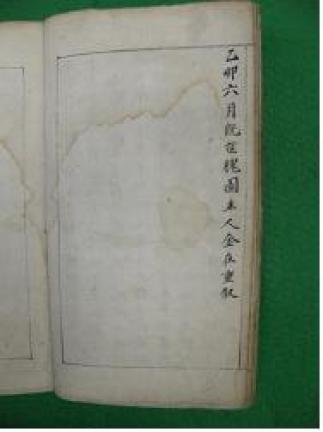 乙卯六月旣望槐園主人金在重叙